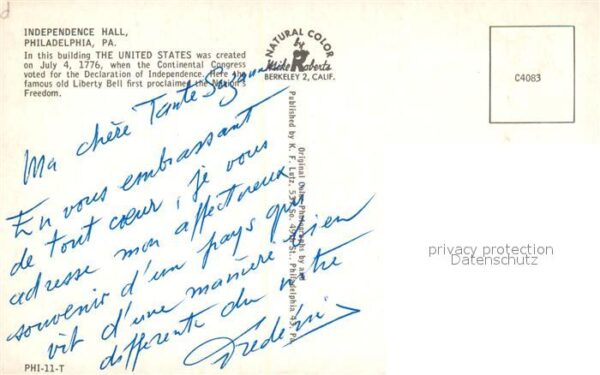 INDEPENDENCE HALL,
PHILADELPHIA, PA.
In this building THE UNITED STATES was created
on July 4, 1776, when the Continental Congress
voted for the Declaration of Independence. Here the
famous old Liberty Bell first proclaimed the Nation's
Freedom.
NATURAL COLOR
by
Mike Roberts
BERKELEY 2, CALIF.
C4083
Ma chère Tante Suzanne
En vous embrassant
de tout cœur, je vous
adresse mon affectueux
souvenir d'un pays qui
vit d'une manière bien
différente du nôtre
Frédéric
Original Color Photographs by and
Published by K. F. Lutz, 537 So. 49th St., Philadelphia 43, Pa.
privacy protection
Datenschutz
PHI-11-T